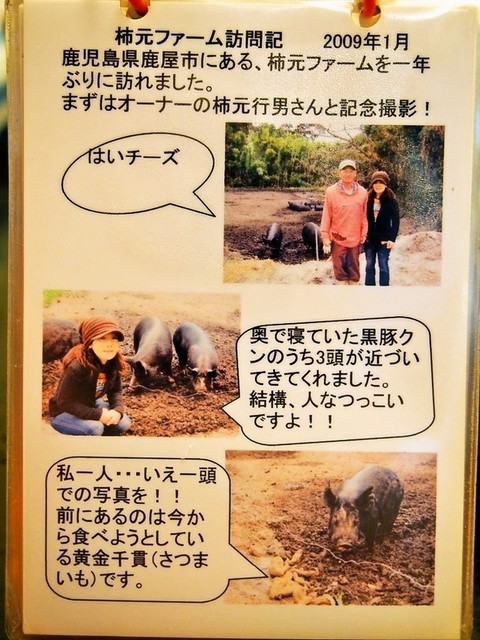 柿元ファーム訪問記　2009年1月
鹿児島県鹿屋市にある、柿元ファームを一年
ぶりに訪れました。
まずはオーナーの柿元行男さんと記念撮影！
はいチーズ
奥で寝ていた黒豚ク
ンのうち3頭が近づい
てきてくれました。
結構、人なつっこい
ですよ！！
私一人・・・いえ一頭
での写真を！！
前にあるのは今か
ら食べようとしてい
る黄金千貫（さつま
いも）です。